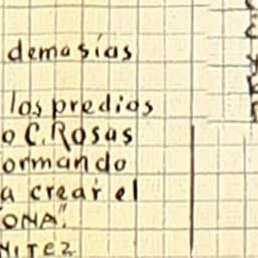 demasías
los predios
o C. Rosas
ormando
a crear el
ONA".
NITEZ